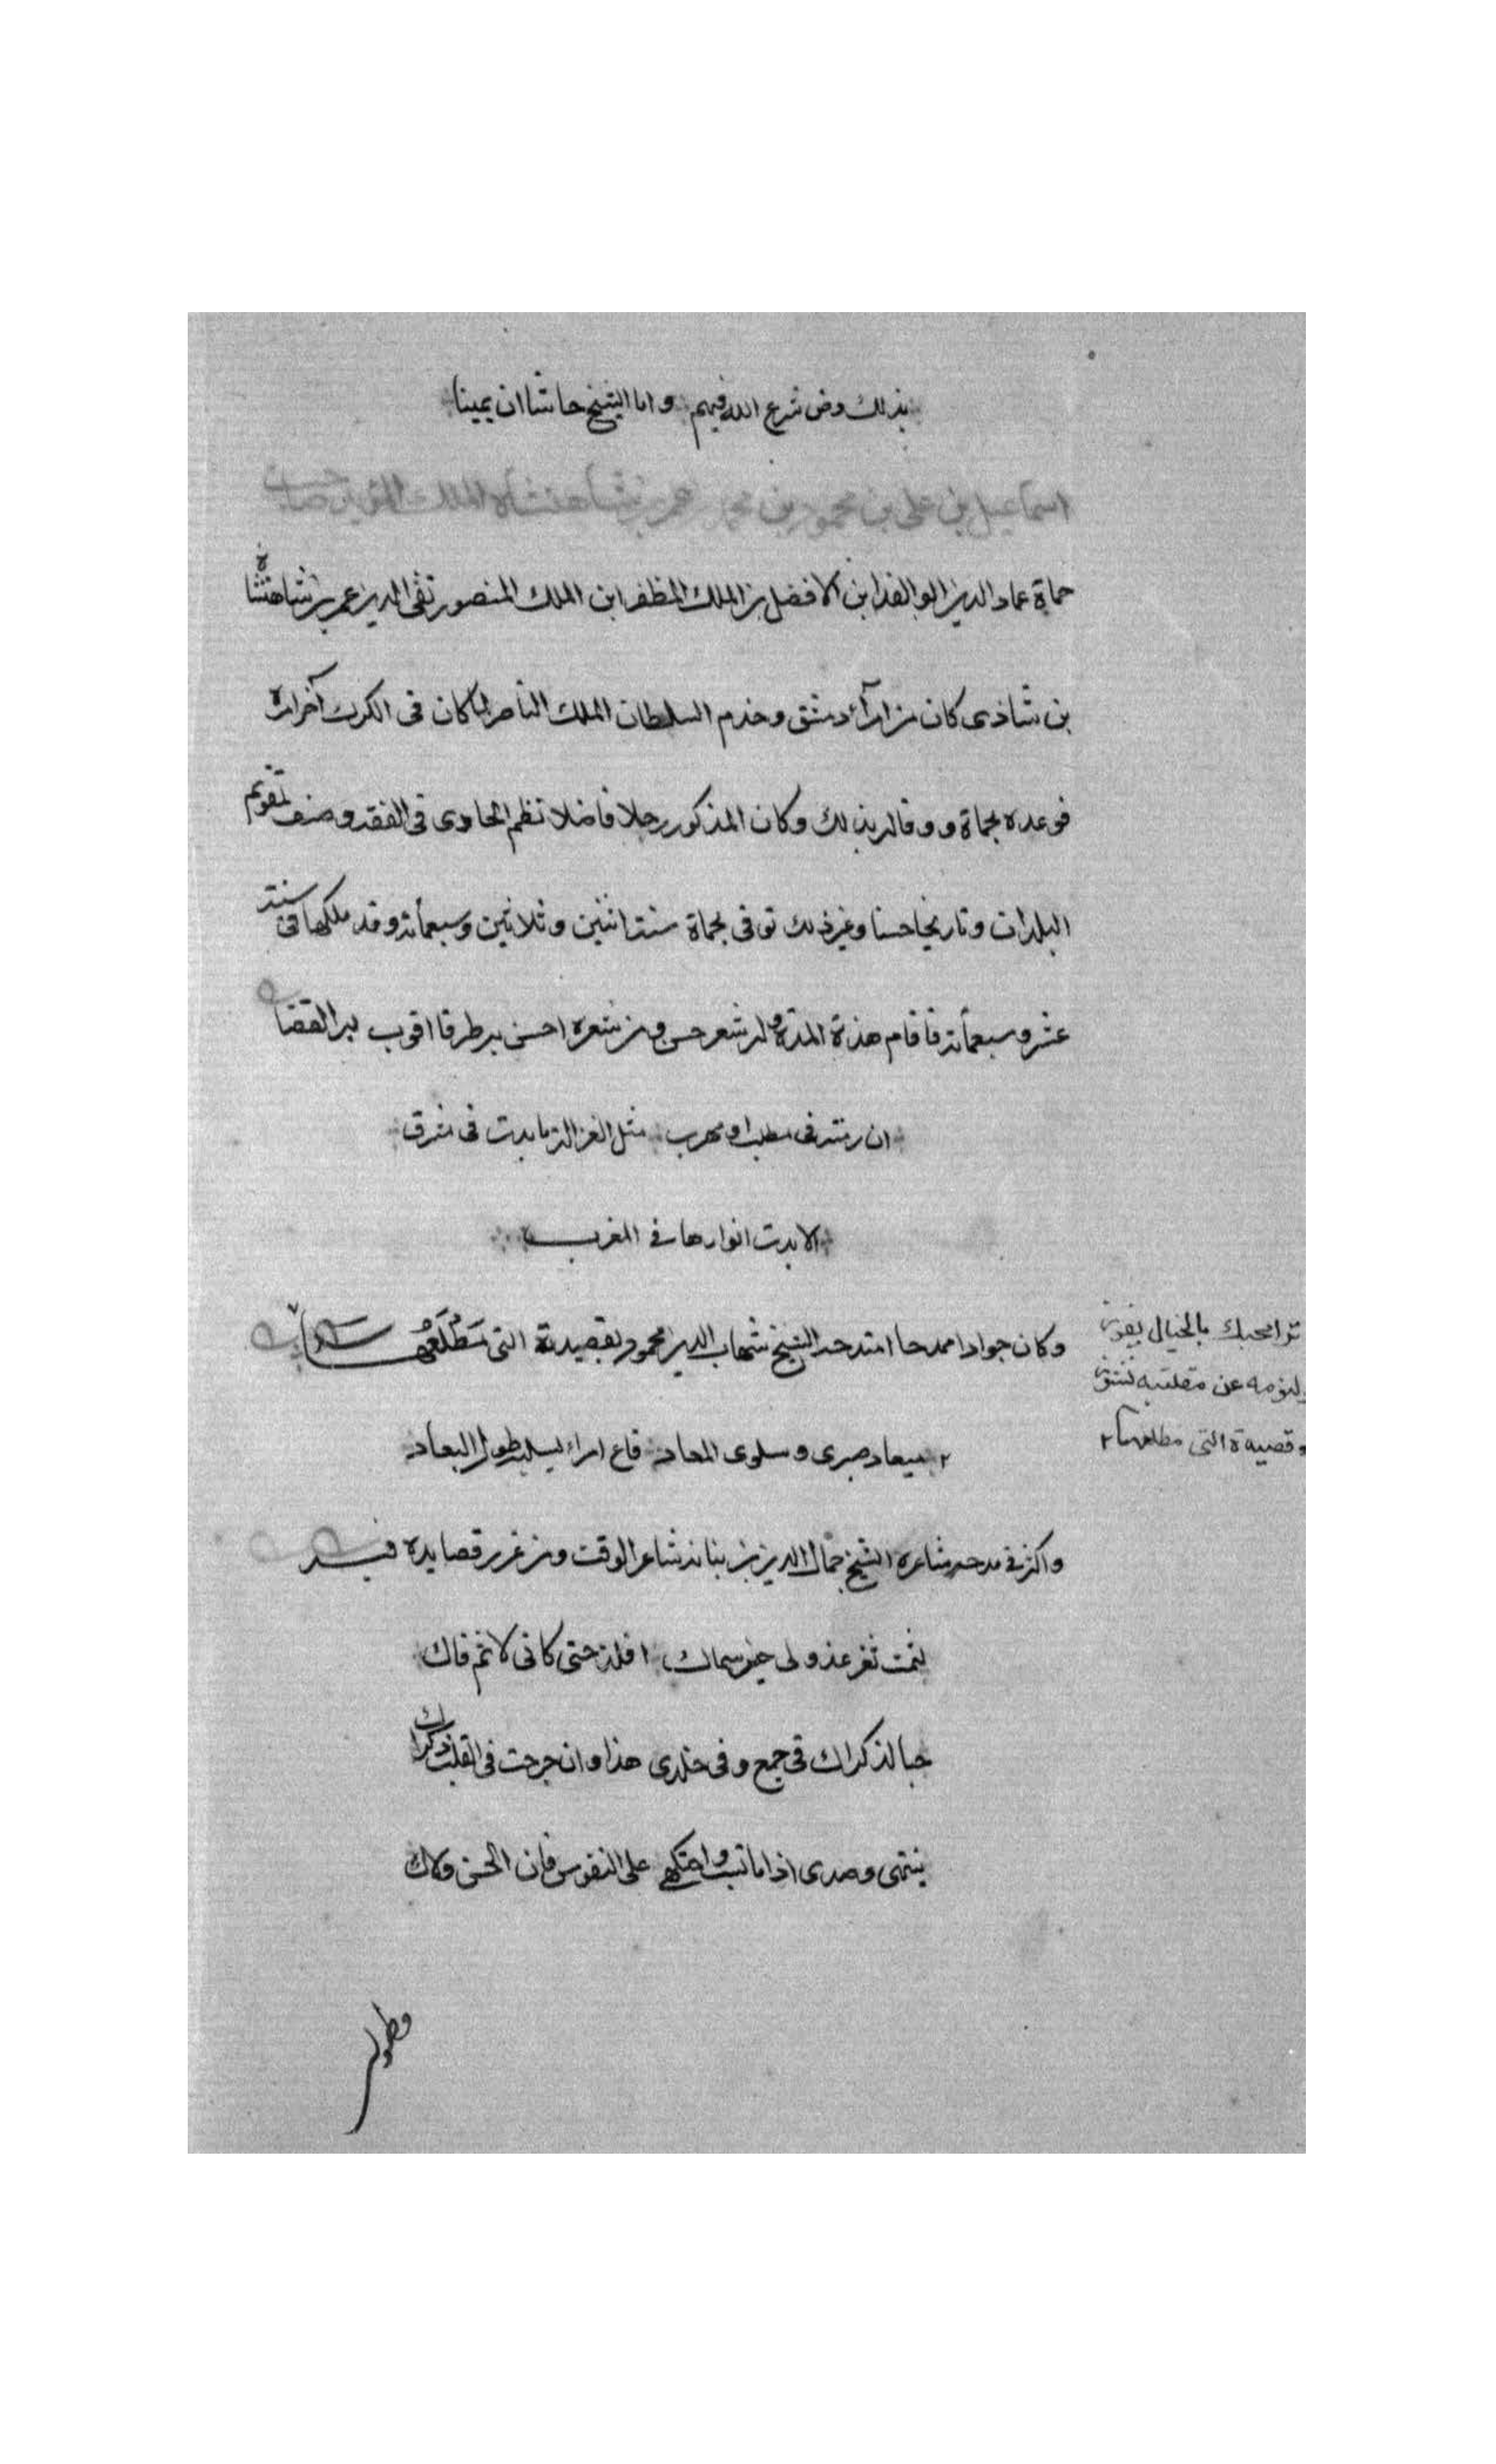 بذلك وض شرع الله فيهم واما الشيخ حاشا ان يمينا
اسماعيل بن على بن محمود بن محمد بن عمر بن شاهنشاه الملك المؤيد صاحب
حماة عماد الدين ابو الفدا ابن الافضل بن الملك المظفر ابن الملك المنصور تقى الدين عمر بن شاهنشاه
بن شاذى كان من امرآء دمشق وخدم السلطان الملك الناصر لما كان فى الكرك آخر امره
فوعده بحماة ووفا له بذلك وكان المذكور رجلا فاضلا نظم الحاوى فى الفقه وصنف تقويم
البلدان وتاريخا حسنا وغير ذلك توفى بحماة سنة اثنين وثلاثين وسبعمأة وقد ملكها فى سنة
عشر وسبعمأة فاقام هذة المدة وله شعر حسن ومن شعره احسن به طرفا افوت به القضا
ان رمته فى مطلب او مهرب مثل الغزالة ما بدت فى مشرق
الا بدت انوارها فى المغرب
وكان جوادا ممدحا امتدحه الشيخ شهاب الدين محمود بقصيدتة التى مَطْلَعُها
ترا محبك بالخيال يفوز
ولنومه عن مقلتيه نشوز
وقصيدة التى مطلعها ٢
٢ ميعاد صبرى وسلوى المعاد فاع امراء يسليه طول البعاد
واكثر فى مدحه شاعره الشيخ جمال الدين بن نباته شاعر الوقت ومن غرر قصايده فيه
لثمت ثغر عذولى حين سماك فلذ حتى كانى لاثم فاك
حبا لذكراك فى سمع وفى خلدى هذا وان جرحت فى القلب ذكراك
تيهى وصدى اذا ما شيت واحتكمى على النفوس فان الحسن ولاك
وطولى